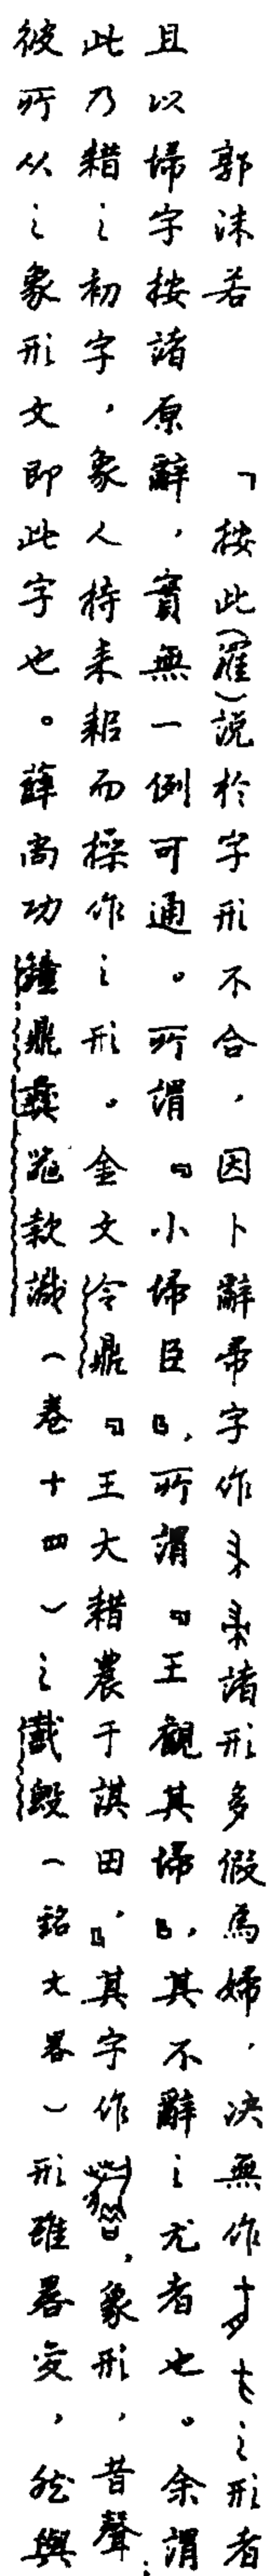 郭沫若　「按此(羅)說於字形不合，因卜辭帚字作諸形多假為婦，決無作之形者
且以埽字按諸原辭，實無一例可通。所謂『小埽臣』，所謂『王觀其埽』，其不辭之尤者也。余謂
此乃耤之初字，象人持耒耜而操作之形。金文令鼎『王大耤農于諆田』，其字作，象形，昔聲；
彼所从之象形文即此字也。薛尚功鐘鼎彝器款識（卷十四）之𢧜𣪘（銘文畧）形雖畧変，然與